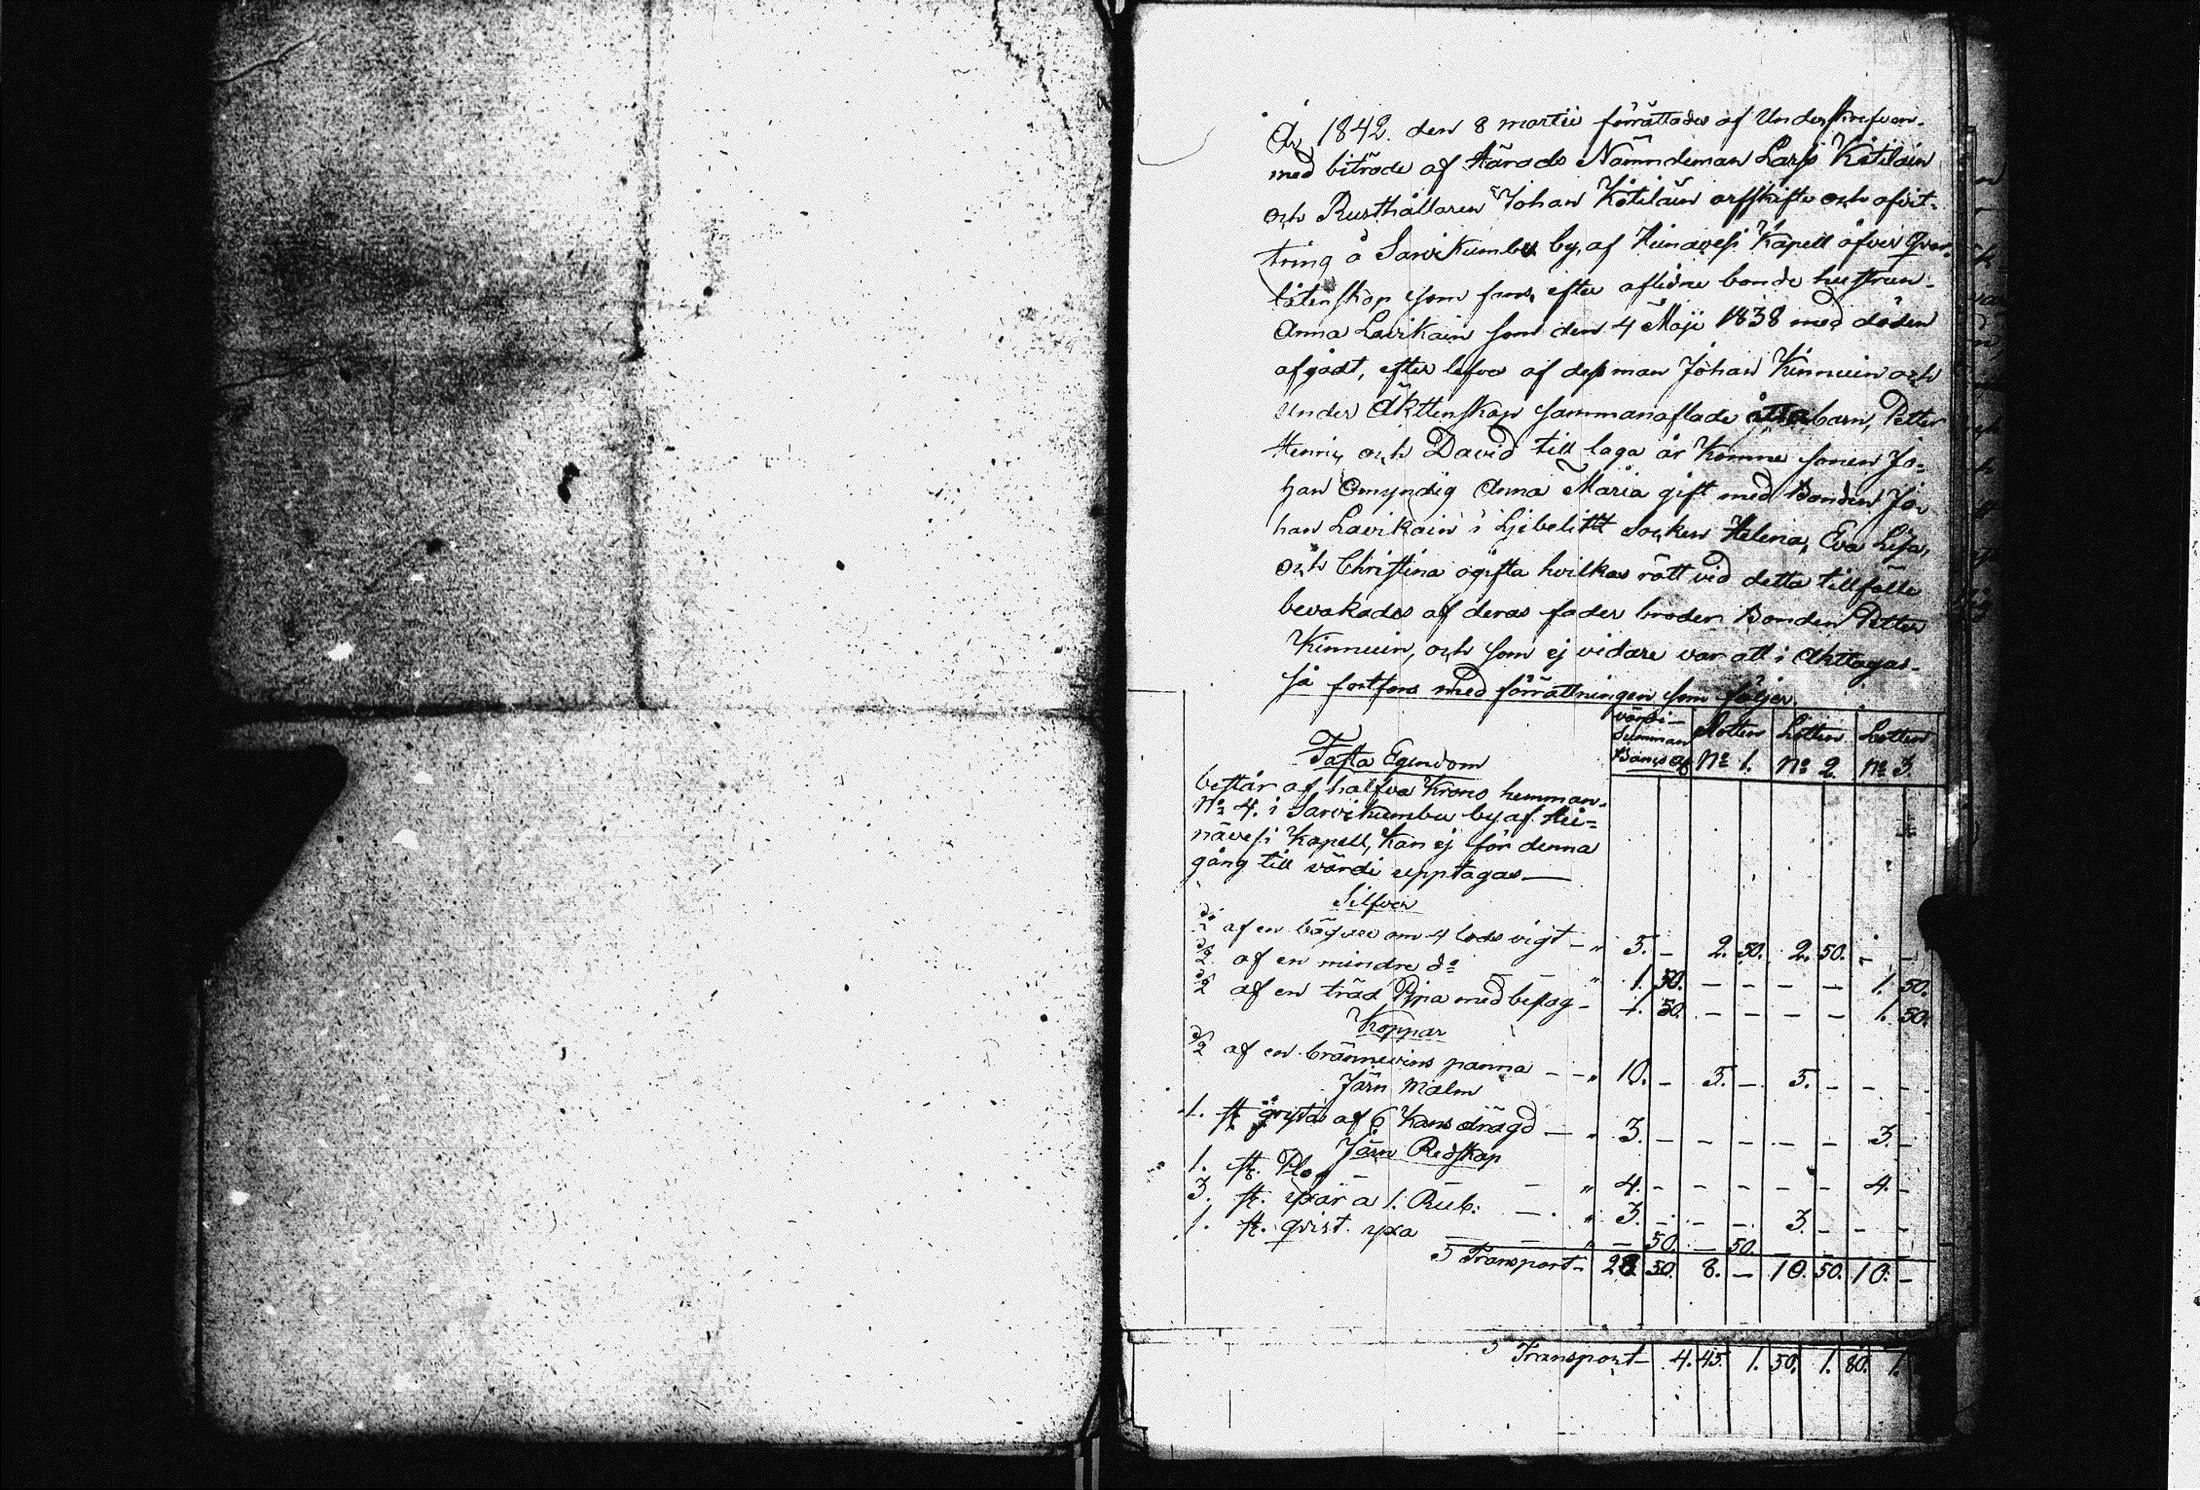 År 1842 den 8 martii förrättades af Underskrefven-
med biträde af Härads Nämndeman Lars Kötiläin
och Rusthållaren Johan Kötiläin arfskifte och afvit-
tring å Sarvikumbu by, af Heinävesi Kapell öfver Qvar-
låtenskap som fans, efter aflidne bonde hustrun-
Anna Lavikain som den 4 Maji 1838 med döden
afgådt, efter lefvo af dess man Johan Kinnuin och
under Äkttenskap sammanaflade åtta barn, Petter
Henric, och David till laga år Komne sonen Jo-
han Omyndig Anna Maria gift med Bonden Jo-
han Lavikain i Libelitt Socken Helena, Eva Lisa,
och Christina ogifta hvilkas rätt vid detta tillfälle
bevakades af deras fader broder Bonden Petter
Kinnuin, och som ej vidare var att i Akttagas-
så fortfors med förrättningen som följer
värdi- Lotten Lotten Lotten
Summan
Banco № 1. № 2. № 3.
Fasta Egendom
består af halfva Krono hemman-
№ 4. i Sarvikumbu by af Hei-
nävesi Kapell, Kan ej för denna
gång till värdi upptagas —
Silfver
½ af en bägare om 4 lods vigt - " 5. - 2. 50. 2. 50. - -
½ af en mindre do - - " 1. 50. - - - - 1. 50.
½ af en träd Pipa med beslag - 1. 50. - - - - 1. 50.
Koppar
½ af en brännevins panna - - " 10. - 5. - 5. - - -
Järn Malm
1. st. gryta af 6 Kans drägd - " 3. - - - - - 3. -
Järn Redskap
1. st. Plog - - " 4. - - - - - 4. -
3. st. yxar a 1. Rub. - " 3. - - - 3. - - -
1. st. qvist yxa - - " - 50. - 50. - -
Transport- 28 50. 8. - 10. 50. 10. -
Transport- 4. 45. 1. 50. 1. 80. 1.